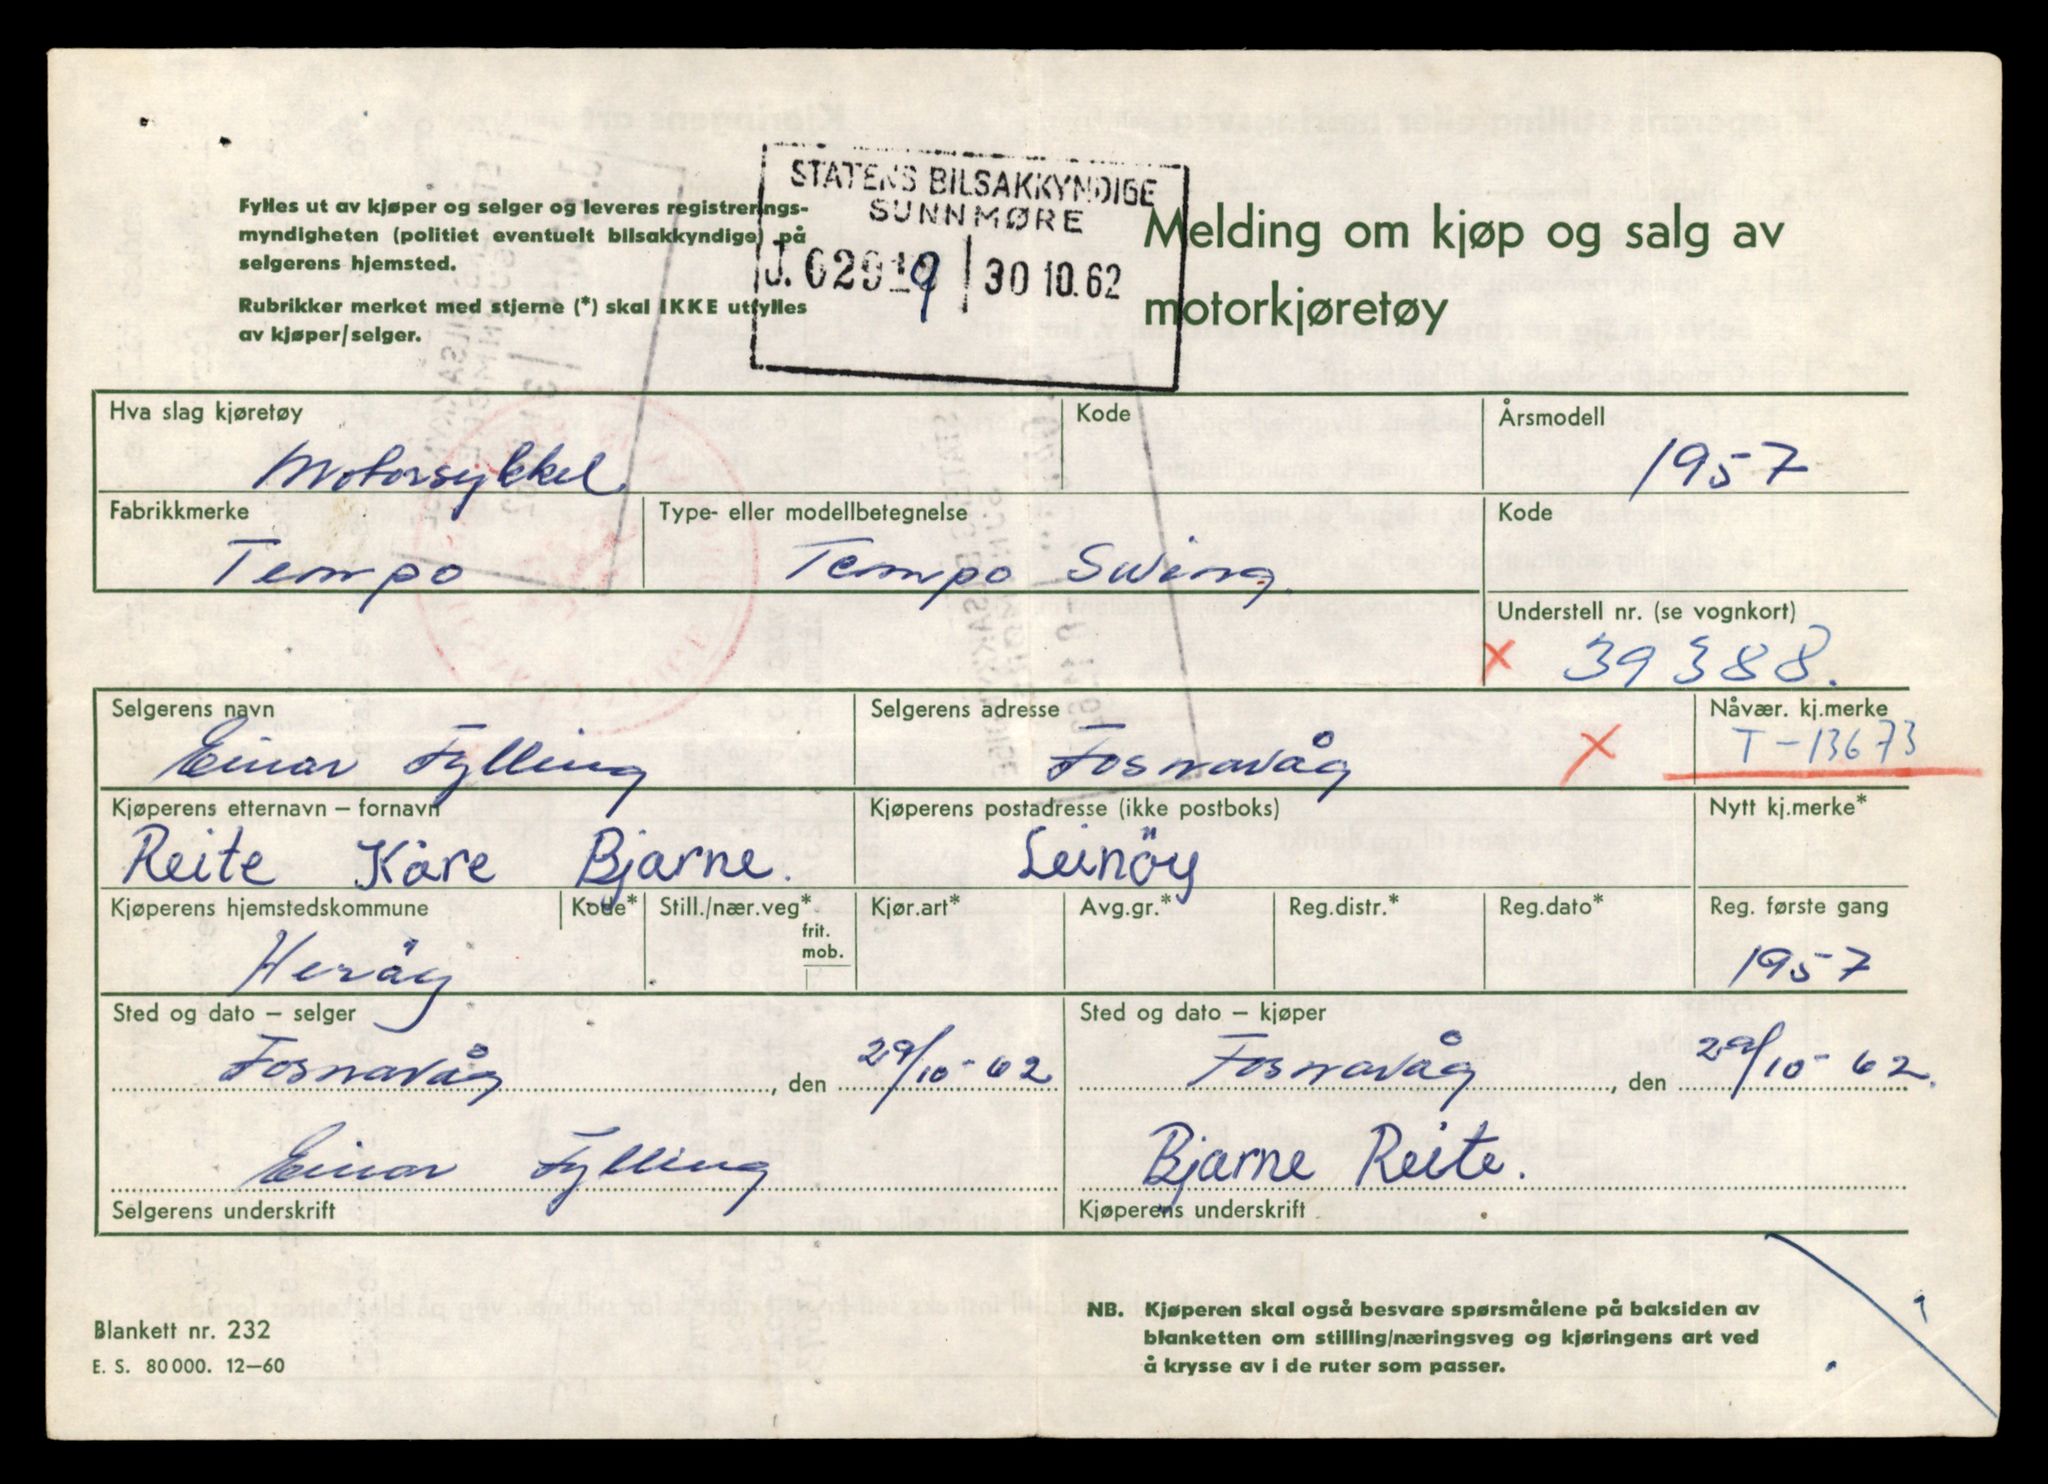 Fylles ut av kjøper og selger og leveres registrerings-
myndigheten (politiet eventuelt bilsakkyndige) på
selgerens hjemsted.
Rubrikker merket med stjerne (*) skal IKKE utfylles
av kjøper/selger.
STATENS BILSAKKYNDIGE
SUNNMØRE
J. 02919 30 10.62
Melding om kjøp og salg av
motorkjøretøy
Hva slag kjøretøy Kode Årsmodell
Motorsykkel 1957
Fabrikkmerke Type- eller modellbetegnelse Kode
Tempo Tempo Swing.
Understell nr. (se vognkort)
x 39388.
Selgerens navn Selgerens adresse Nåvær. kj.merke
Einar Fylling Fosnavåg x T-13673
Kjøperens etternavn – fornavn Kjøperens postadresse (ikke postboks) Nytt kj.merke*
Reite Kåre Bjarne. Leinöy
Kjøperens hjemstedskommune Kode* Still./nær.veg* frit. mob. Kjør.art* Avg.gr.* Reg.distr.* Reg.dato* Reg. første gang
Heröy 1957
Sted og dato – selger Sted og dato – kjøper
Fosnavåg, den 29/10-62 Fosnavåg, den 29/10-62.
Einar Fylling Bjarne Reite.
Selgerens underskrift Kjøperens underskrift
NB. Kjøperen skal også besvare spørsmålene på baksiden av
blanketten om stilling/næringsveg og kjøringens art ved
å krysse av i de ruter som passer.
Blankett nr. 232
E. S. 80 000. 12–60